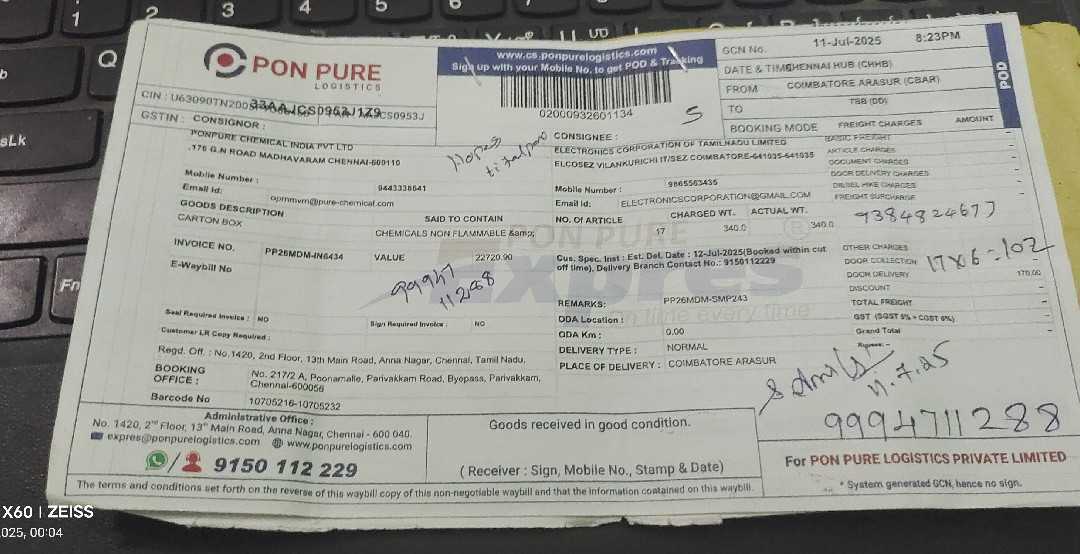 PON PURE
LOGISTICS
www.cs.ponpurelogistics.com
Sign up with your Mobile No. to get POD & Tracking
02000932601134
S
GCN No. 11-Jul-2025 8:23PM
DATE & TIME CHENNAI HUB (CHHB)
FROM COIMBATORE ARASUR (CBAR)
TO TBB (DD)
BOOKING MODE FREIGHT CHARGES AMOUNT
POD
GSTIN : 33AAJCS0953J1Z9
CONSIGNOR :
PONPURE CHEMICAL INDIA PVT LTD
.176 G.N ROAD MADHAVARAM CHENNAI-600110
Mobile Number : 9443338641
Email Id: opmmvm@pure-chemical.com
CONSIGNEE :
ELECTRONICS CORPORATION OF TAMILNADU LIMITED
ELCOSEZ VILANKURICHI IT/SEZ COIMBATORE-641035-641035
Mobile Number : 9865563435
Email Id: ELECTRONICSCORPORATION@GMAIL.COM
BASIC FREIGHT -
ARTICLE CHARGES -
DOCUMENT CHARGES -
DOOR DELIVERY CHARGES -
DIESEL HIKE CHARGES -
FREIGHT SURCHARGE -
9384824677
GOODS DESCRIPTION SAID TO CONTAIN NO. OF ARTICLE CHARGED WT. ACTUAL WT.
CARTON BOX CHEMICALS NON FLAMMABLE &amp; 17 340.0 340.0
PON PURE
Expres
on time every time
INVOICE NO. PP26MDM-IN6434 VALUE 22720.90
E-Waybill No
99947
11288
Cus. Spec. Inst : Est. Del. Date : 12-Jul-2025(Booked within cut
off time), Delivery Branch Contact No.: 9150112229
REMARKS: PP26MDM-SMP243
ODA Location :
ODA Km : 0.00
DELIVERY TYPE : NORMAL
PLACE OF DELIVERY : COIMBATORE ARASUR
OTHER CHARGES -
DOOR COLLECTION -
17x6=102
DOOR DELIVERY 170.00
DISCOUNT -
TOTAL FREIGHT -
GST (SGST 6% + CGST 6%) -
Grand Total -
Rupees: --
Seal Required Invoice : NO Sign Required Invoice : NO
Customer LR Copy Required :
Regd. Off. : No.1420, 2nd Floor, 13th Main Road, Anna Nagar, Chennai, Tamil Nadu.
BOOKING OFFICE : No. 217/2 A, Poonamalle, Parivakkam Road, Byepass, Parivakkam,
Chennai-600056
Barcode No 10705216-10705232
11.7.25
9994711288
Administrative Office :
No. 1420, 2nd Floor, 13th Main Road, Anna Nagar, Chennai - 600 040.
expres@ponpurelogistics.com www.ponpurelogistics.com
9150 112 229
Goods received in good condition.
( Receiver : Sign, Mobile No., Stamp & Date)
For PON PURE LOGISTICS PRIVATE LIMITED
* System generated GCN, hence no sign.
The terms and conditions set forth on the reverse of this waybill copy of this non-negotiable waybill and that the information contained on this waybill.
X60 | ZEISS
025, 00:04